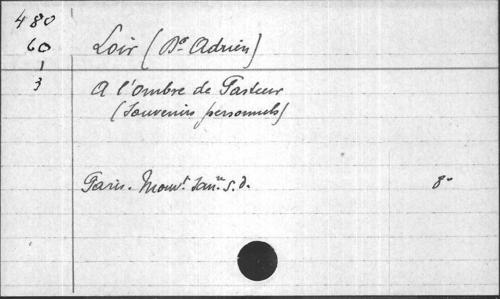 480
60 Loir (Dr Adrien)
1
3 A l'ombre de Pasteur
(Souvenirs personnels)
Paris. Mouvt. Sanre s.d. 8°